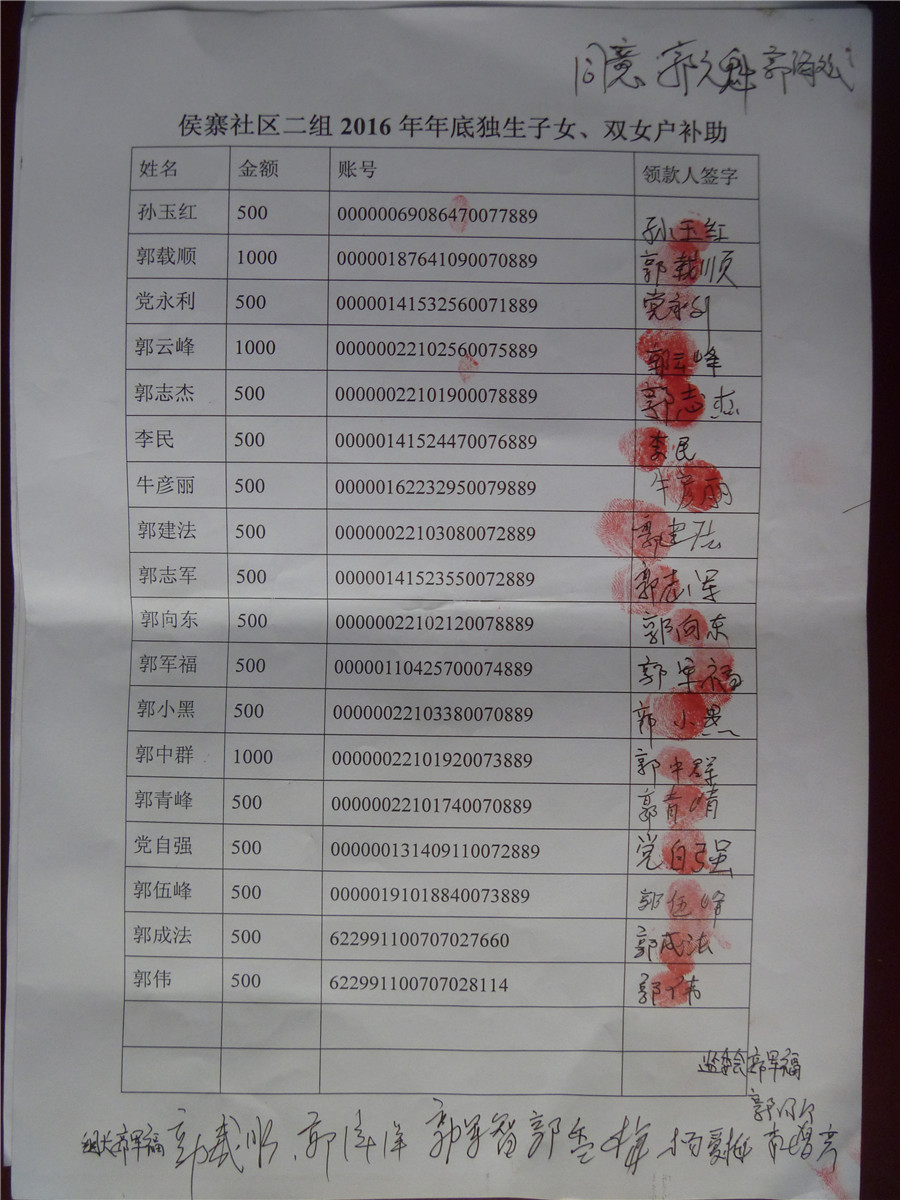 同意 郭久魁
侯寨社区二组 2016 年年底独生子女、双女户补助
姓名 金额 账号 领款人签字
孙玉红 500 00000069086470077889 孙玉红
郭载顺 1000 00000187641090070889 郭载顺
党永利 500 00000141532560071889 党永利
郭云峰 1000 00000022102560075889 郭云峰
郭志杰 500 00000022101900078889 郭志杰
李民 500 00000141524470076889 李民
牛彦丽 500 00000162232950079889 牛彦丽
郭建法 500 00000022103080072889 郭建法
郭志军 500 00000141523550072889 郭志军
郭向东 500 00000022102120078889 郭向东
郭军福 500 00000110425700074889 郭军福
郭小黑 500 00000022103380070889 郭小黑
郭中群 1000 00000022101920073889 郭中群
郭青峰 500 00000022101740070889 郭青峰
党自强 500 000000131409110072889 党自强
郭伍峰 500 00000191018840073889 郭伍峰
郭成法 500 622991100707027660 郭成法
郭伟 500 622991100707028114 郭伟
监委会 郭军福
组长 郭军福 郭洋洋 郭军智 郭香梅 杨爱梅